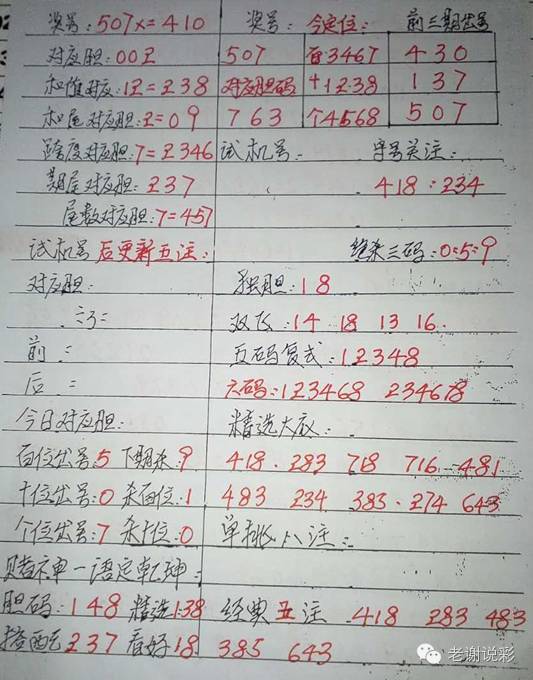 奖号:507x=410 奖号: 今定位: 前三期出号
对应胆:002 507 百3467 430
和值对应:12=238 对应胆码 十1238 137
和尾对应胆:2=09 763 个4568 507
跨度对应胆:7=2346 试机号: 字号关注:
期尾对应胆:237 418:234
尾数对应胆:7=457
试机号后更新五注: 绝杀三码:0:5:9
对应胆: 独胆:18
双飞:14 18 13 16.
前 = 五码复式:12348
后 = 六码:123468 234678
今日对应胆: 精选大底:
百位出号:5 下期杀:9 418. 283 718 716 481
十位出号:0 杀百位:1 483 234 383. 274 643
个位出号:7 杀十位:0 单挑八注:
赌神一语定乾坤:
胆码:148 精选138 经典五注 418 283 483
搭配237 看好18 385 643
老谢说彩